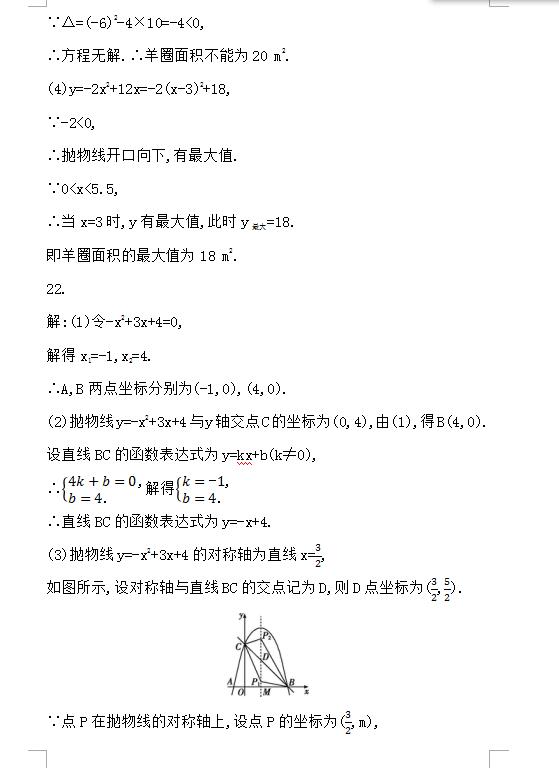 ∵△=(-6)²-4×10=-4<0,
∴方程无解.∴羊圈面积不能为20 m².
(4)y=-2x²+12x=-2(x-3)²+18,
∵-2<0,
∴抛物线开口向下,有最大值.
∵0<x<5.5,
∴当x=3时,y有最大值,此时y最大=18.
即羊圈面积的最大值为18 m².
22.
解:(1)令-x²+3x+4=0,
解得x₁=-1,x₂=4.
∴A,B两点坐标分别为(-1,0),(4,0).
(2)抛物线y=-x²+3x+4与y轴交点C的坐标为(0,4),由(1),得B(4,0).
设直线BC的函数表达式为y=kx+b(k≠0),
∴{4k+b=0, b=4. 解得{k=-1, b=4.
∴直线BC的函数表达式为y=-x+4.
(3)抛物线y=-x²+3x+4的对称轴为直线x=3/2,
如图所示,设对称轴与直线BC的交点记为D,则D点坐标为(3/2,5/2).
y
C P₂
D
A P₁ B
O M x
∵点P在抛物线的对称轴上,设点P的坐标为(3/2,m),